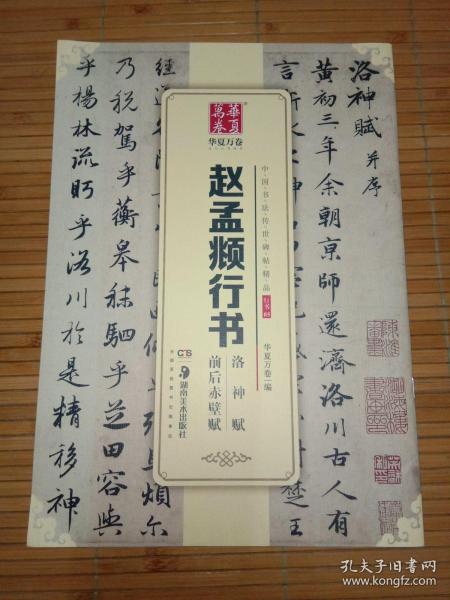 洛神賦 并序
黄初三年余朝京師還濟洛川古人有
楚王
經
乃税駕乎蘅皋秣駟乎芝田容與
乎楊林流眄乎洛川於是精移神
華夏
萬卷
华夏万卷
中·国·书·法·传·世·碑·帖·精·品
行书05
赵孟頫行书
华夏万卷 编
洛神赋
前后赤壁赋
湖南美术出版社
孔夫子旧书网
www.kongfz.com